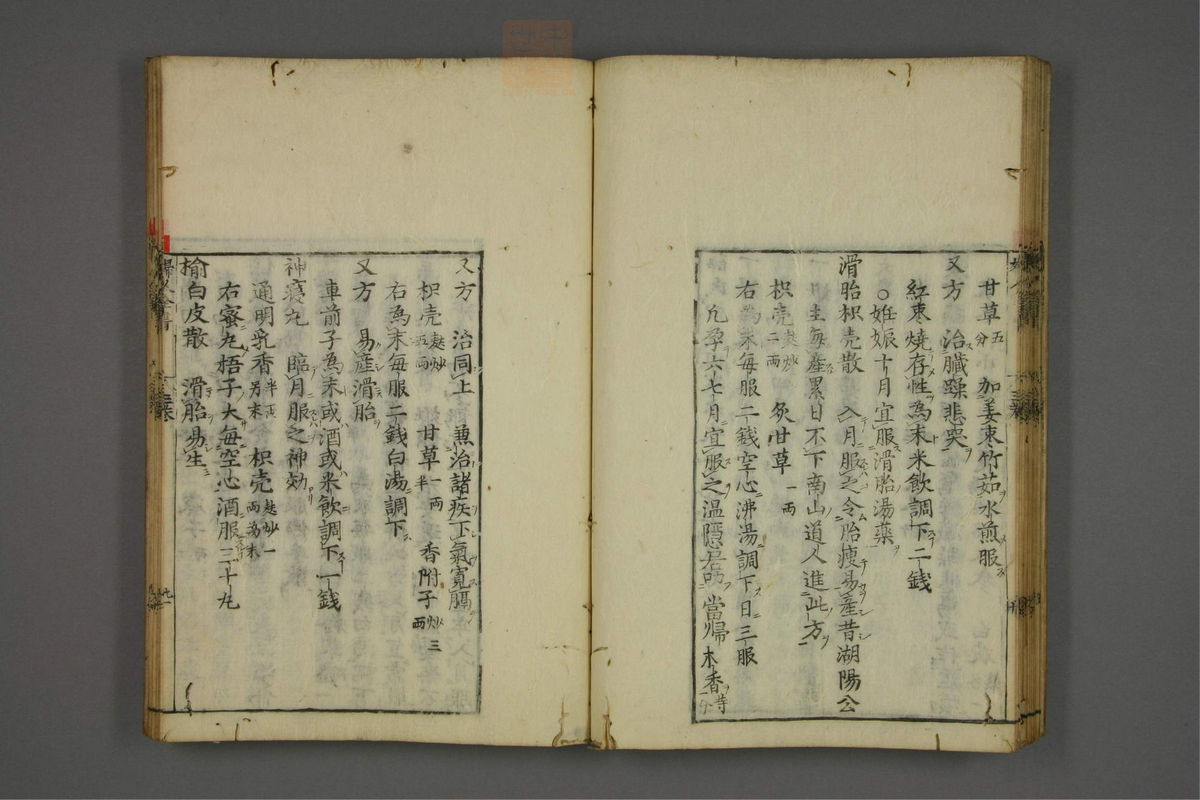 甘草五分 加姜枣竹茹水煎服
又方 治臓躁悲哭
紅枣燒存性為末米飲調下二錢
○妊娠十月宜服滑胎湯藥
滑胎枳壳散 入月服之令胎瘦易産昔湖陽公
主每産累日不下南山道人進此方
枳壳麸炒二両 炙甘草一両
右為末每服二錢空心沸湯調下日三服
凢孕六七月宜服之温隱居加當帰木香等分
又方 治同上 兼治諸疾下氣寬膈
枳壳麸炒五両 甘草一両半 香附子炒三両
右為末每服二錢白湯調下
又方 易産滑胎
車前子為末或酒或米飲調下一錢
神寢丸 臨月服之神効
通明乳香半両另末 枳壳麸炒一両為末
右蜜丸梧子大每空心酒服三十丸
榆白皮散 滑胎易生